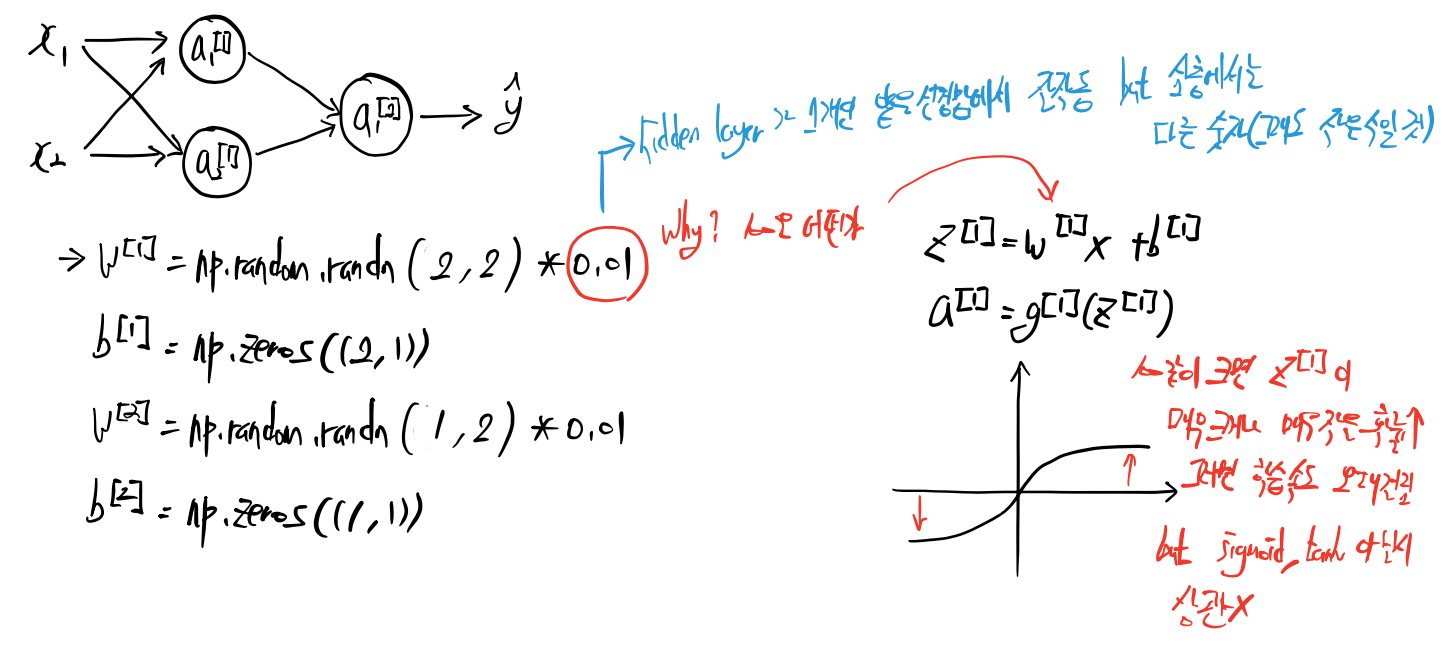 x₁ a₁[1]
a₁[2] → ŷ
x₂ a₂[1]
→ hidden layer가 1개면 얕은신경망에서 잘작동 but 심층에서는
다른 숫자(그래도 작은수일 것)
Why? 100은 어떤가
→ W[1] = np.random.randn(2,2) * 0.01
b[1] = np.zeros((2,1))
W[2] = np.random.randn(1,2) * 0.01
b[2] = np.zeros((1,1))
z[1] = w[1]x + b[1]
a[1] = g[1](z[1])
크면 z[1]이
매우크거나 매우작은 확률↑
그러면 학습속도
but sigmoid, tanh
상관X